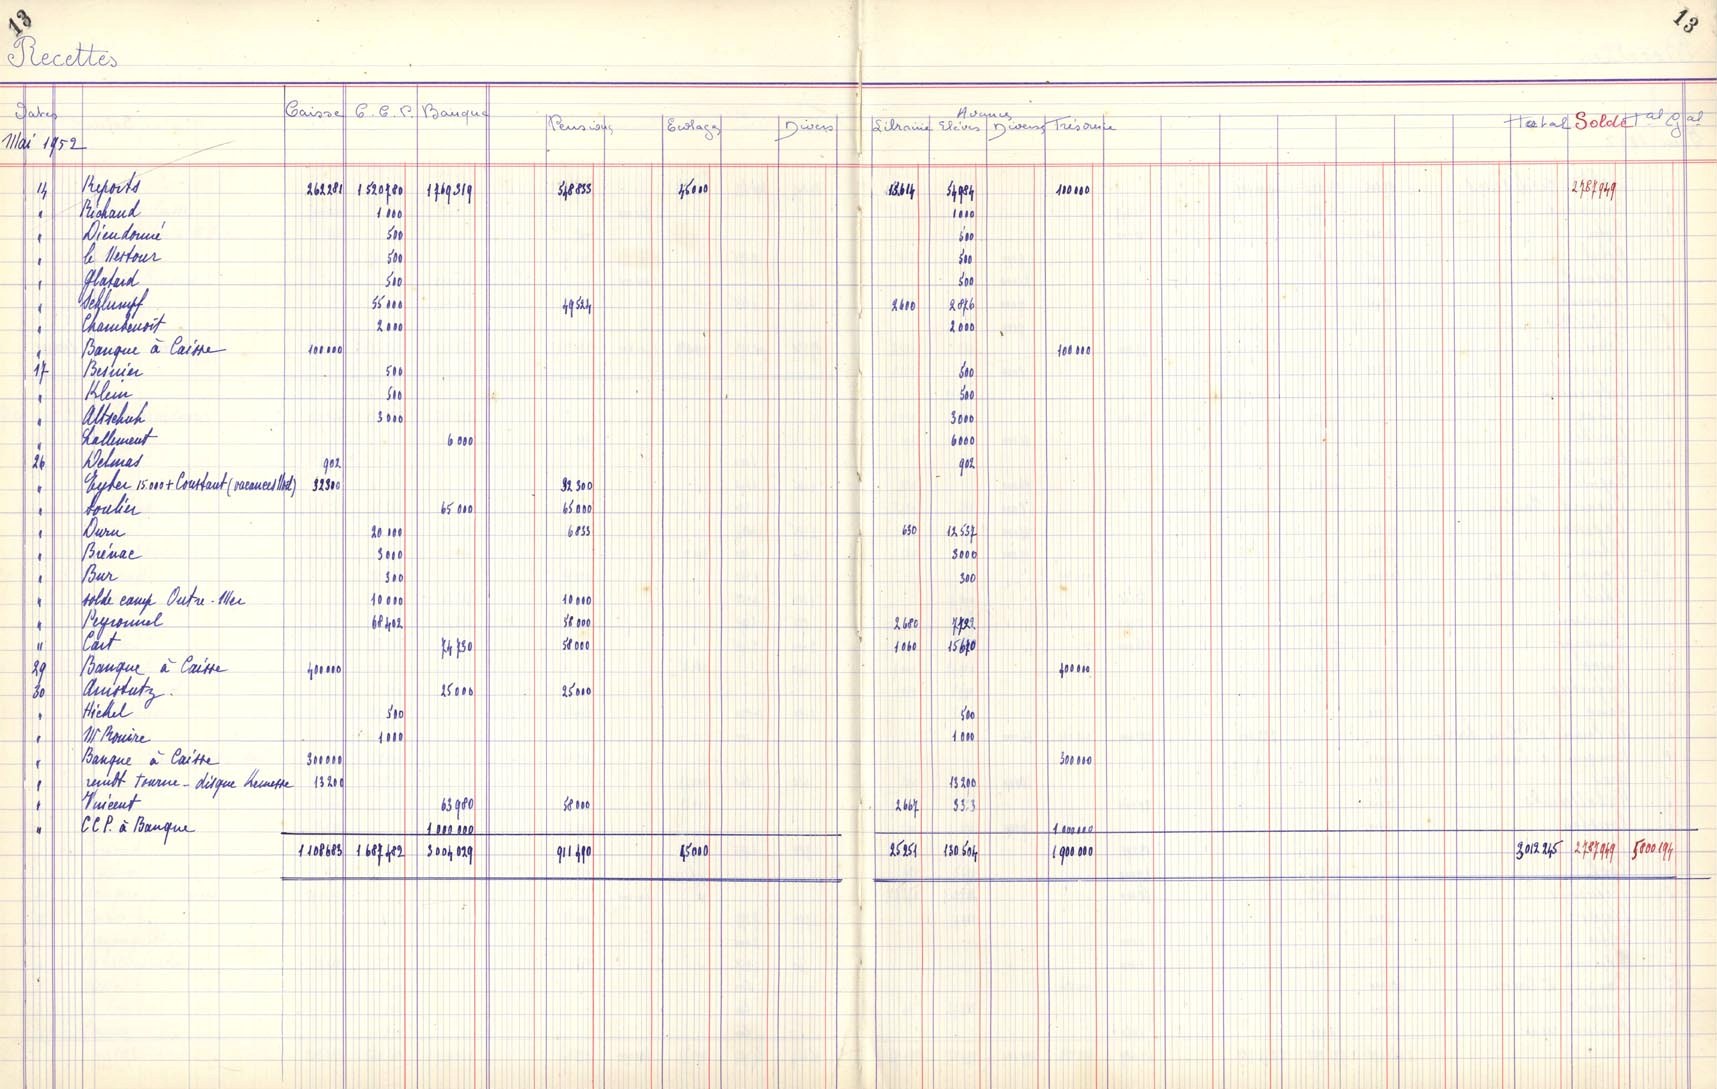 13 13
Recettes
Dates Caisse C.C.P. Banque Pensions Ecolages Divers Librairie Avances Elèves Divers Trésorerie Total Solde Tal Gal
Mai 1952
14 Reports 262281 1520780 1769319 548833 45000 13614 54984 100000 2787949
" Richaud 1000 1000
" Dieudonné 500 500
" Le Nestour 500 500
" Glatard 500 500
" Schlumpf 55000 49524 2600 2876
" Chambenoit 2000 2000
" Banque à Caisse 100000 100000
17 Besnier 500 500
" Klein 500 500
" Altschuh 3000 3000
" Lallement 6000 6000
26 Delmas 902 902
" Eyber 15.000 + Constant (vacances Noël) 32300 32300
" Soulier 65000 65000
" Duru 20000 6833 630 12537
" Brénac 3000 3000
" Bur 300 300
" solde camp Outre-Mer 10000 10000
" Peyronnel 68402 58000 2680 7722
" Cart 74730 58000 1060 15670
29 Banque à Caisse 400000 400000
30 Amstutz. 25000 25000
" Hickel 500 500
" Mr Rouire 1000 1000
" Banque à Caisse 300000 300000
" rembt tourne-disque Kermesse 13200 13200
" Vincent 63980 58000 2667 3313
" C.C.P. à Banque 1000000 1000000
1108683 1687482 3004029 911490 45000 25251 130504 1900000 3012245 2787949 5800194